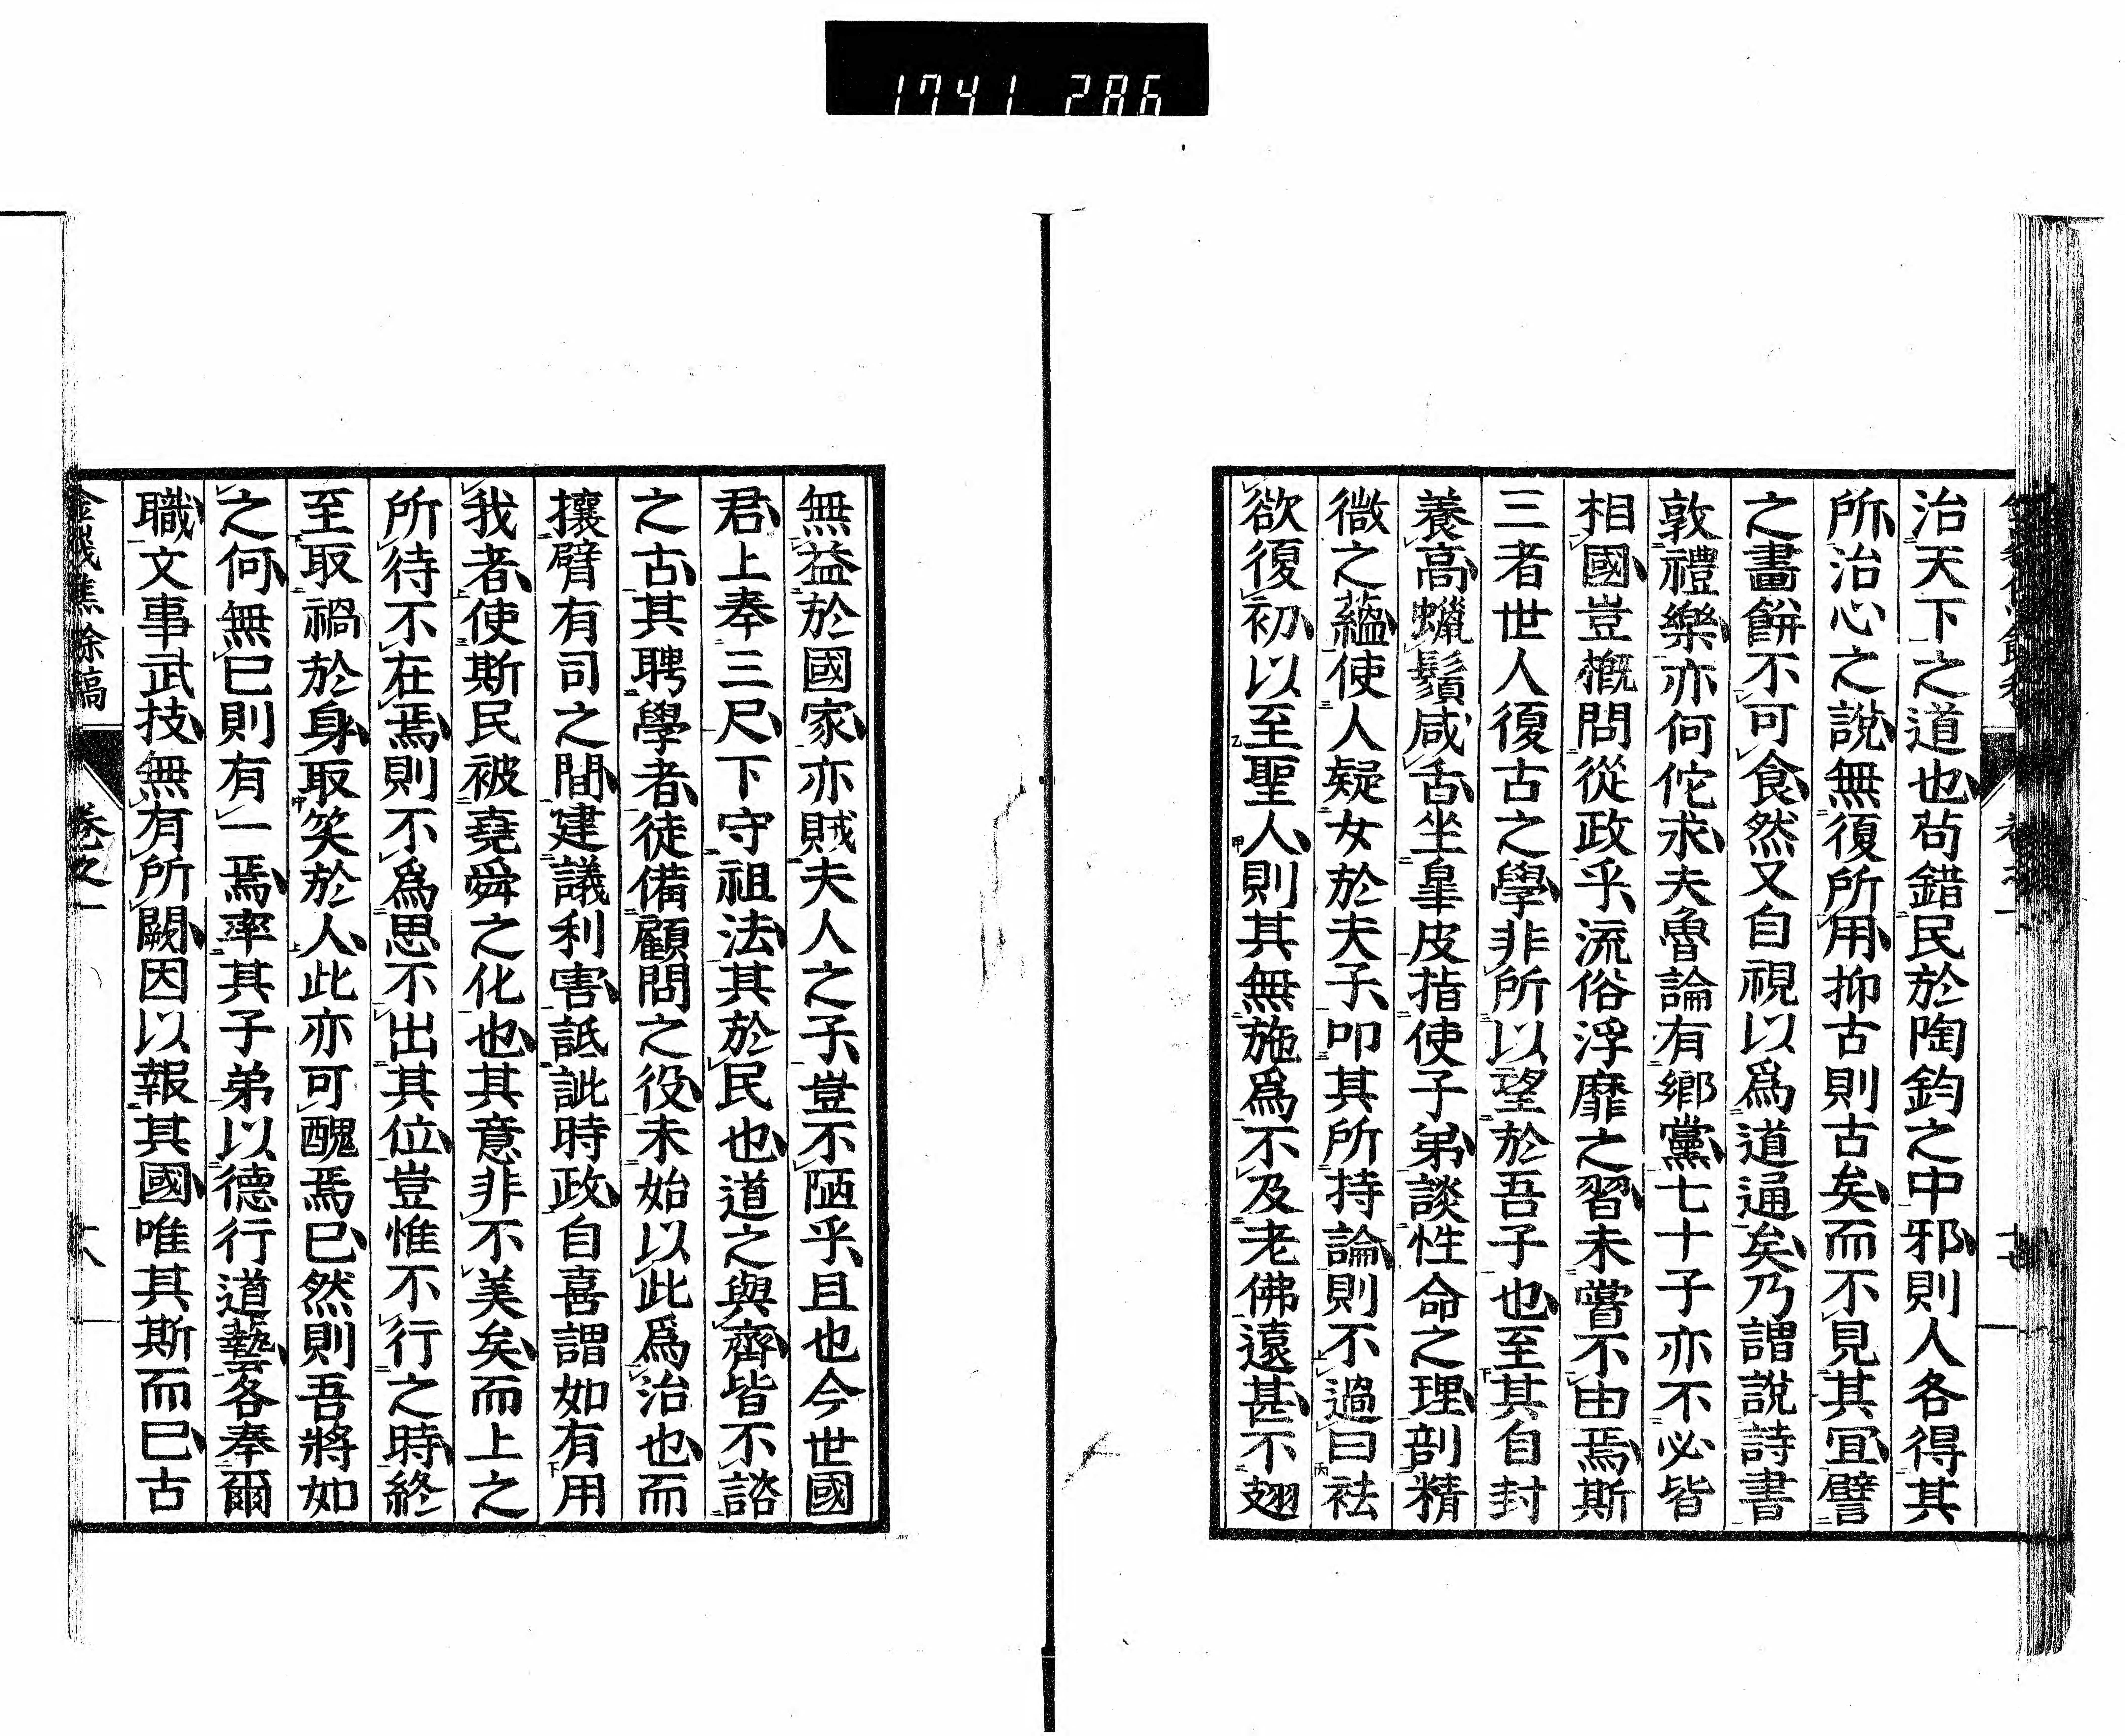 1741 286
治天下之道也苟錯民於陶鈞之中邪則人各得其
所治心之說無復所用抑古則古矣而不見其宜譬
之畫餅不可食然又自視以爲道通矣乃謂說詩書
敦禮樂亦何佗求夫魯論有鄉黨七十子亦不必皆
相國豈槪問從政乎流俗浮靡之習未嘗不由焉斯
三者世人復古之學非所以望於吾子也至其自封
養高蠟鬚咸舌坐皐皮指使子弟談性命之理剖精
微之蘊使人疑女於夫子叩其所持論則不過曰袪
欲復初以至聖人則其無施爲不及老佛遠甚不翅
無益於國家亦賊夫人之子豈不陋乎且也今世國
君上奉三尺下守祖法其於民也道之與齊皆不諮
之古其聘學者徒備顧問之役未始以此爲治也而
攘臂有司之間建議利害詆訿時政自喜謂如有用
我者使斯民被堯舜之化也其意非不美矣而上之
所待不在焉則不爲思不出其位豈惟不行之時終
至取禍於身取笑於人此亦可醜焉已然則吾將如
之何無已則有一焉率其子弟以德行道藝各奉爾
職文事武技無有所闕因以報其國唯其斯而已古
金峩焦餘稿 卷之一 十八